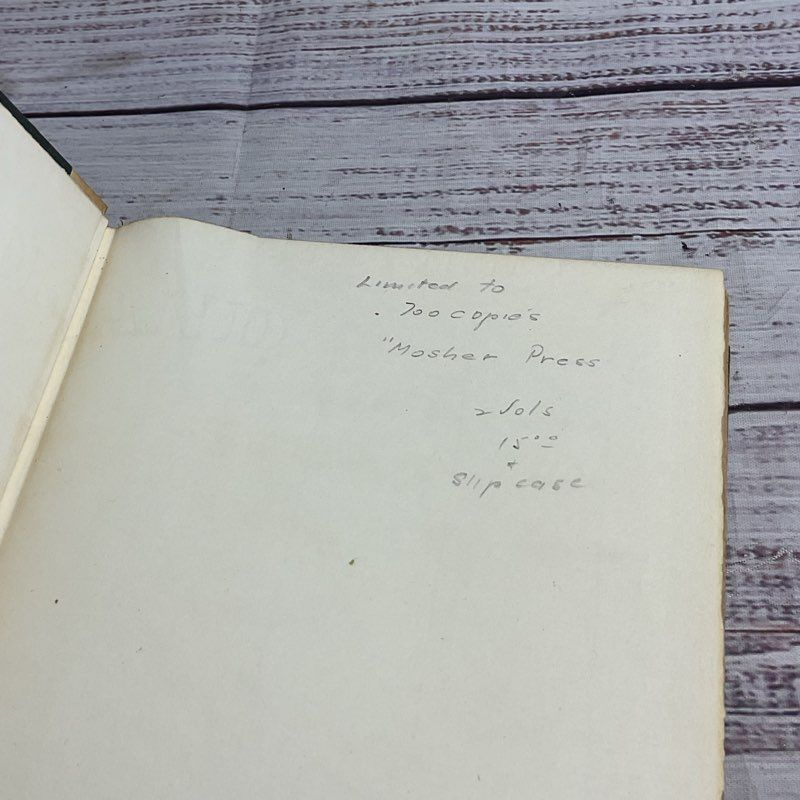 Limited to
. 700 copie's
"Mosher Press
2 Vols
15⁰⁰
+
Slip case